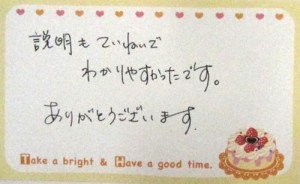 説明もていねいで
わかりやすかったです。
ありがとうございます。
Take a bright & Have a good time.